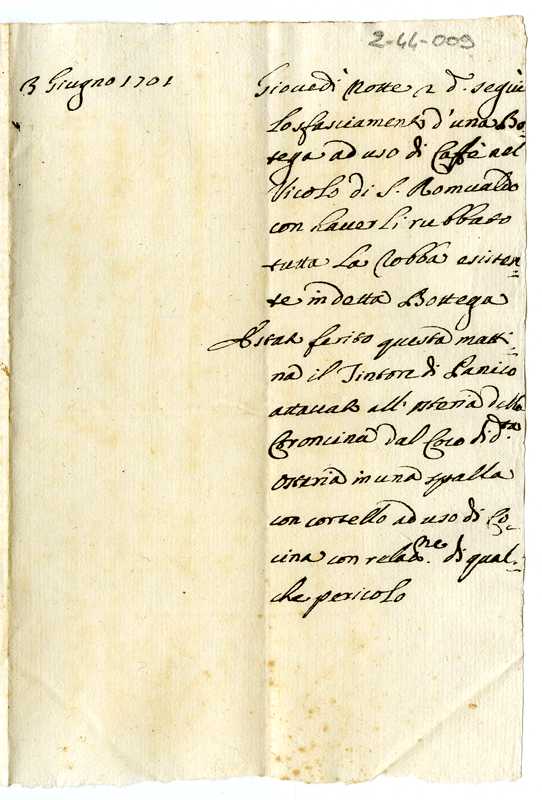 2-44-009
3 Giugno 1701
Giovedi notte 2 d.º seguì
lo sfasciamento d'una Bo-
tega ad uso di Caffè nel
Vicolo di S. Romualdo
con haverli rubbato
tutta la robba esisten-
te in detta Bottega
È stato ferito questa matti-
na il Tintore di Panico
attaccato all' osteria della
Croncina dal Coco di d.ta
Osteria in una spalla
con cortello ad uso di Co-
cina con relat.ne di qual-
che pericolo